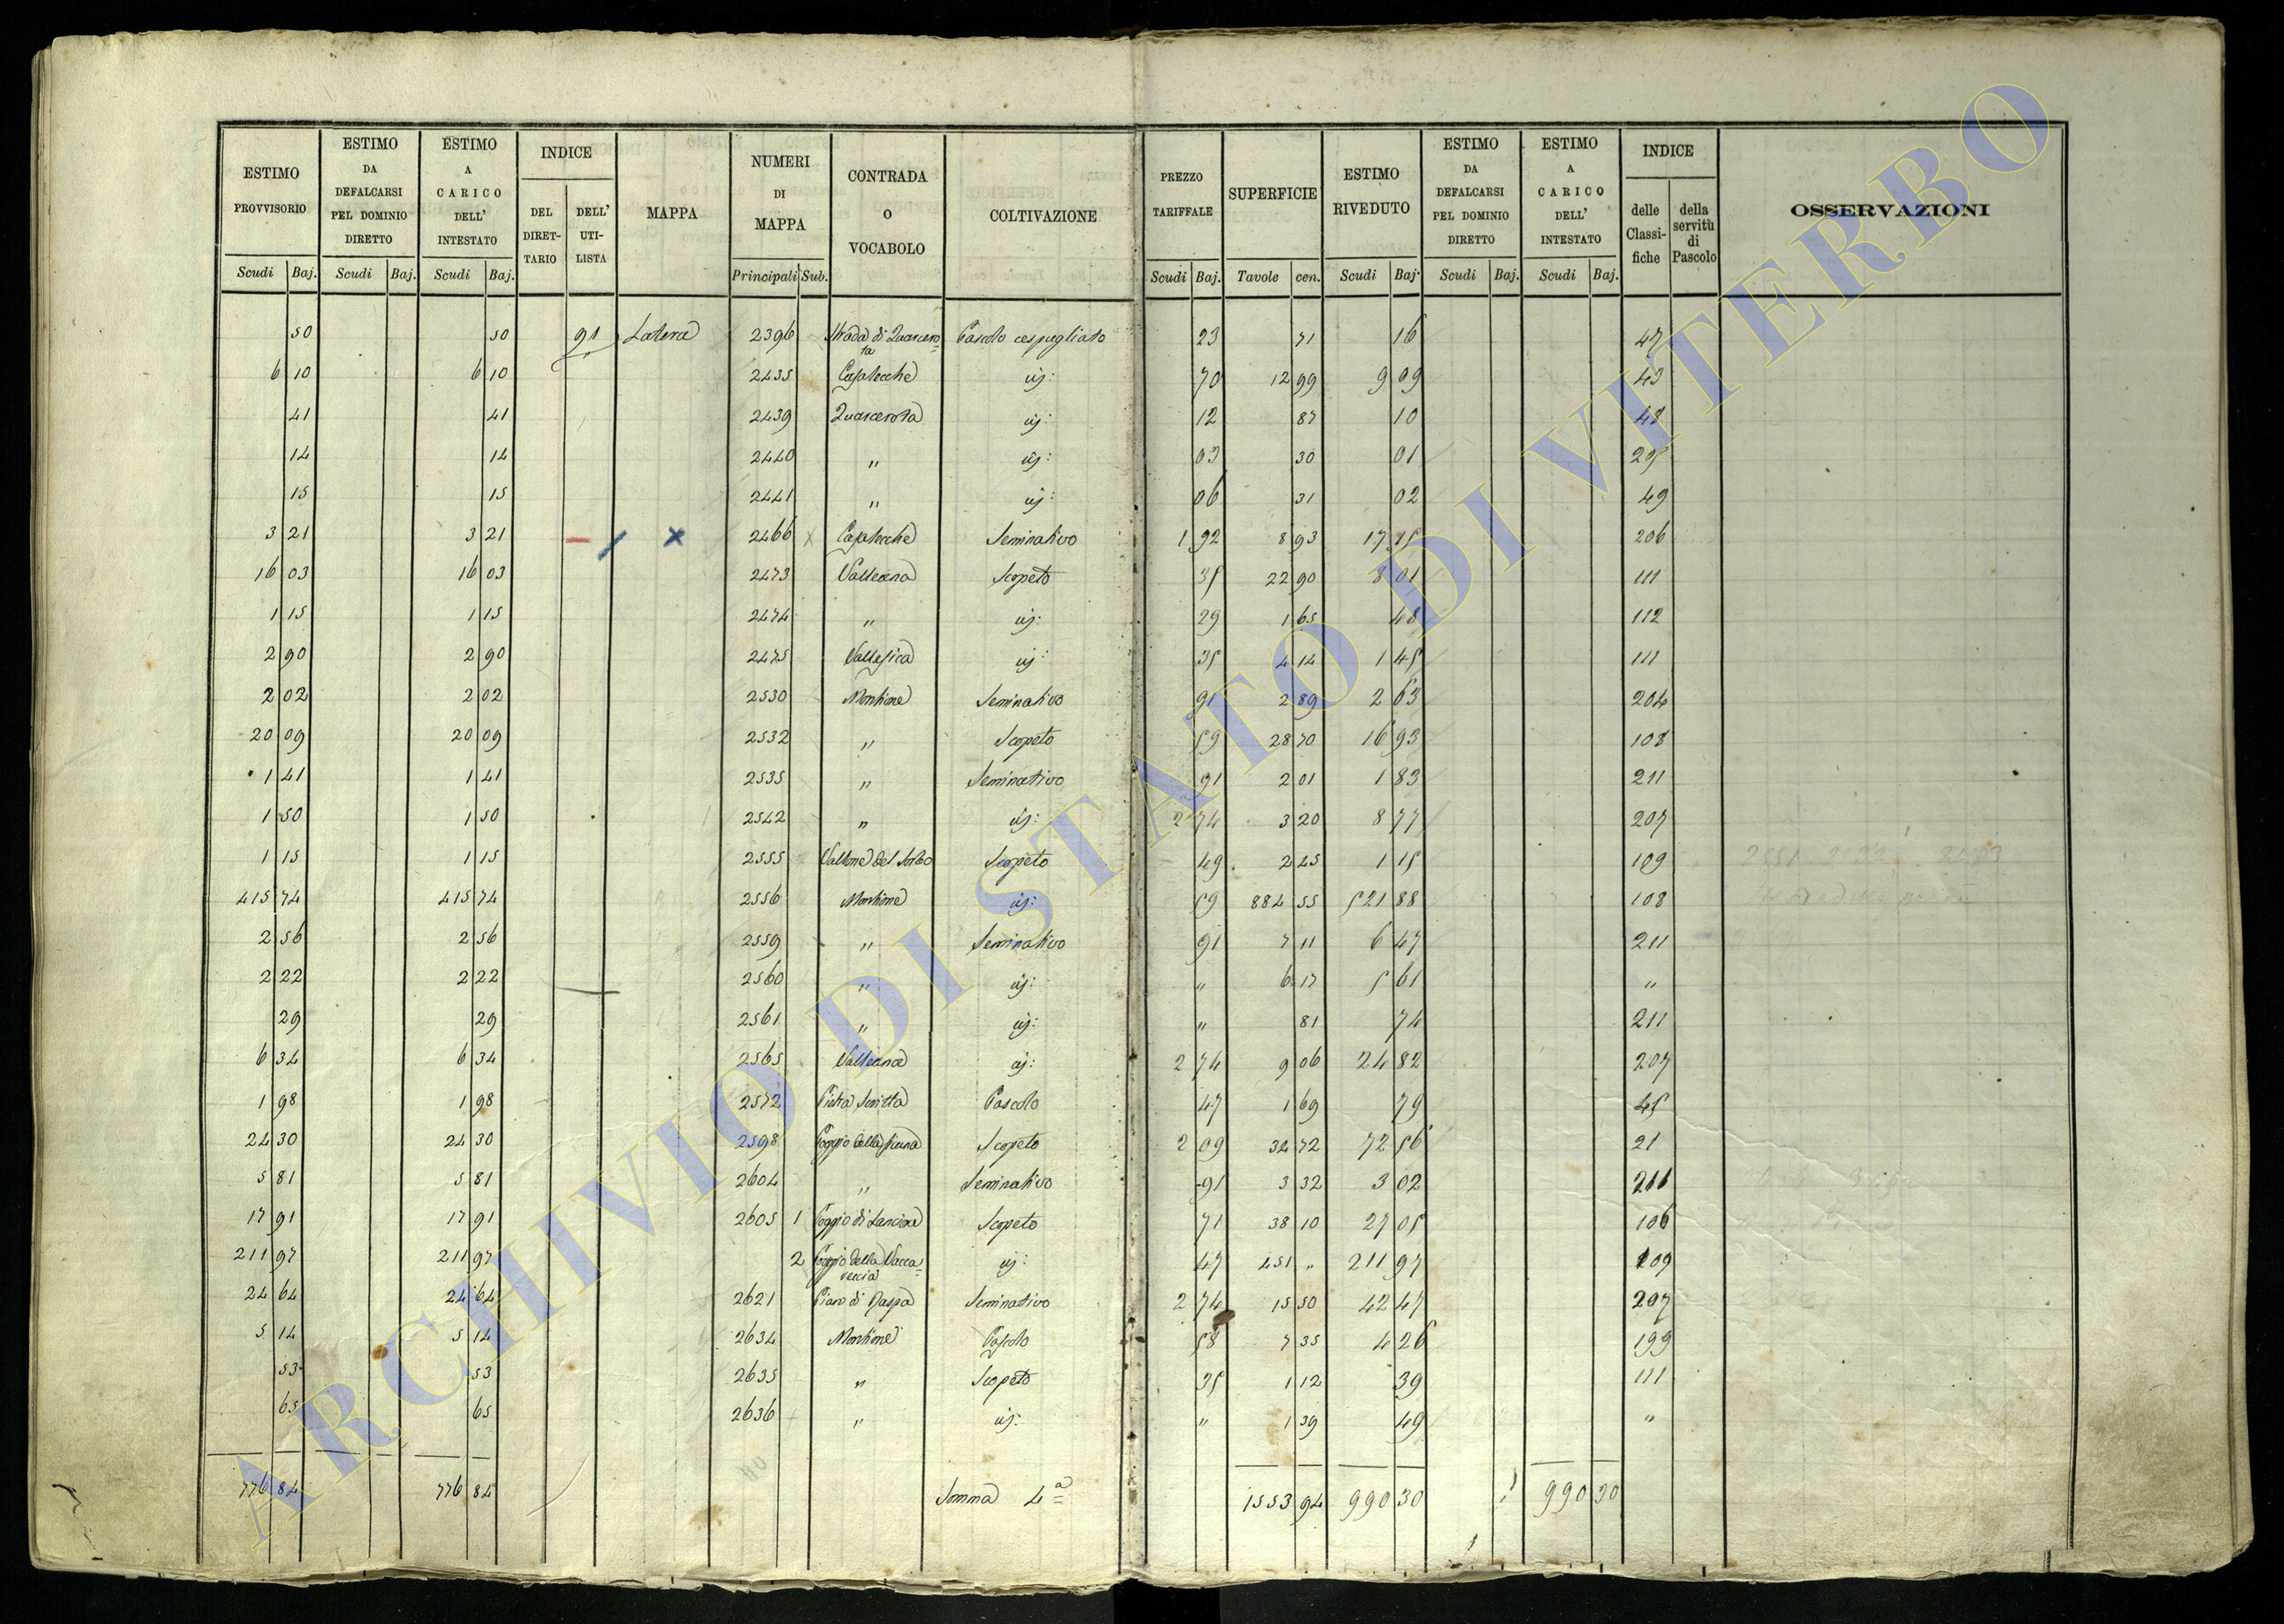 ESTIMO PROVVISORIO | ESTIMO DA DEFALCARSI PEL DOMINIO DIRETTO | ESTIMO A CARICO DELL' INTESTATO | INDICE | MAPPA | NUMERI DI MAPPA | CONTRADA O VOCABOLO | COLTIVAZIONE | PREZZO TARIFFALE | SUPERFICIE | ESTIMO RIVEDUTO | ESTIMO DA DEFALCARSI PEL DOMINIO DIRETTO | ESTIMO A CARICO DELL' INTESTATO | INDICE | OSSERVAZIONI
DEL DIRET-TARIO | DELL' UTI-LISTA | delle Classi-fiche | della servitù di Pascolo
Scudi | Baj. | Scudi | Baj. | Scudi | Baj. | Principali | Sub. | Scudi | Baj. | Tavole | cen. | Scudi | Baj. | Scudi | Baj. | Scudi | Baj.
50 | 50 | 91 | Latera | 2396 | Strada di Quarcero=ta | Pascolo cespugliato | 23 | 71 | 16 | 47
6 10 | 6 10 | 2435 | | 70 | 12 99 | 9 09 | 43
41 | 41 | 2439 | Quarcerota | 12 | 87 | 10 | 48
14 | 14 | 2440 | " | 03 | 30 | 01
15 | 15 | 2441 | " | 06 | 31 | 02 | 49
3 21 | 3 21 | x | 2466 | Seminativo | 1 92 | 8 93 | 17 15 | 206
16 03 | 16 03 | 2473 | Scopeto | 35 | 22 90 | 8 01 | 111
1 15 | 1 15 | 2474 | " | 29 | 1 65 | 48 | 112
2 90 | 2 90 | 2475 | 35 | 4 14 | 1 45 | 111
2 02 | 2 02 | 2530 | Montione | Seminativo | 91 | 2 89 | 2 63 | 204
20 09 | 20 09 | 2532 | " | Scopeto | 59 | 28 70 | 16 93 | 108
1 41 | 1 41 | 2535 | " | Seminativo | 91 | 2 01 | 1 83 | 211
1 50 | 1 50 | 2542 | " | 2 74 | 3 20 | 8 77 | 207
1 15 | 1 15 | 2555 | Vallone del Sorbo | Scopeto | 49 | 2 45 | 1 15 | 109
415 74 | 415 74 | 2556 | Montione | 59 | 884 55 | 521 88 | 108
2 56 | 2 56 | 2559 | " | Seminativo | 91 | 7 11 | 6 47 | 211
2 22 | 2 22 | 2560 | " | " | 6 17 | 5 61 | "
29 | 29 | 2561 | " | " | 81 | 74 | 211
6 34 | 6 34 | 2565 | 2 74 | 9 06 | 24 82 | 207
1 98 | 1 98 | 2572 | Pietra Scritta | Pascolo | 47 | 1 69 | 79 | 45
24 30 | 24 30 | 2598 | Poggio della | Scopeto | 2 09 | 34 72 | 72 56 | 21
5 81 | 5 81 | 2604 | " | Seminativo | 91 | 3 32 | 3 02 | 211
17 91 | 17 91 | 2605 | 1 | Poggio di | Scopeto | 71 | 38 10 | 27 05 | 106
211 97 | 211 97 | 2 | Poggio della Vacca=reccia | 47 | 451 " | 211 97 | 109
24 64 | 24 64 | 2621 | Piano di | Seminativo | 2 74 | 15 50 | 42 47 | 207
5 14 | 5 14 | 2634 | Montione | Pascolo | 58 | 7 35 | 4 26 | 199
53 | 53 | 2635 | " | Scopeto | 35 | 1 12 | 39 | 111
65 | 65 | 2636 | " | " | 1 39 | 49 | "
776 84 | 776 84 | Somma 4ª | 1553 94 | 990 30 | 990 30
ARCHIVIO DI STATO DI VITERBO